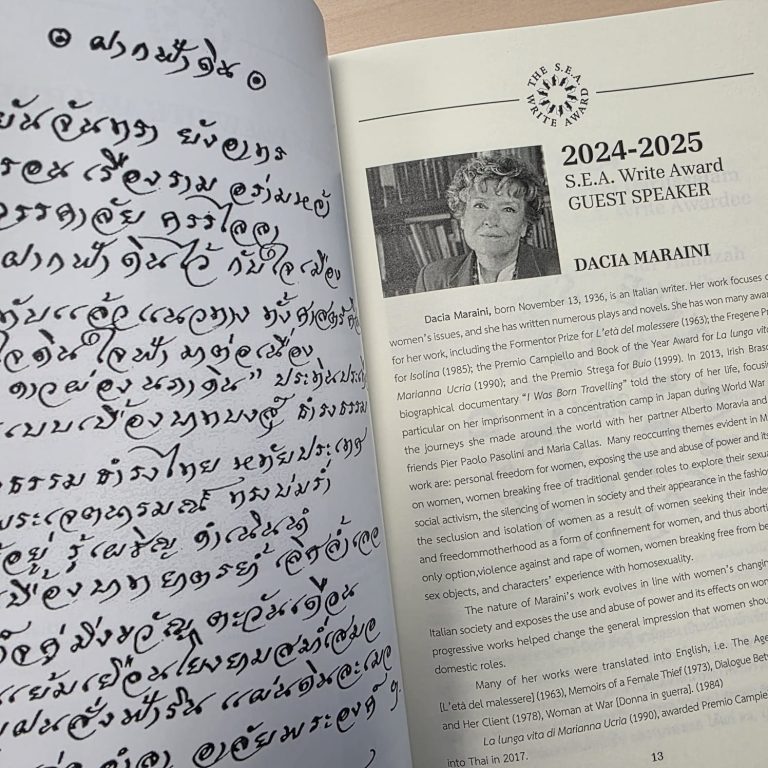 ๏ ฝากฟ้าดิน ๏
จันทรา ยังอาทร
เรืองราม อร่ามหล้า
ฝากฟ้าดินไว้ กับใจเมือง
แล้ว แนวทาง ทั้งศาสตร์ศิลป์
ใจดิน ใจฟ้า มาต่อเนื่อง
ดาวผ่องนภาดิน"
แบบเบื้องบาทบงสุ์ ธำรงธรรม
ธรรม ธำรงไทย หทัยประเทศ
พระเจตนารมณ์ ทรงบ่มร่ำ
อยู่ รู้เผชิญ ดำเนินนำ
เบื้องบาท ยาตรย้ำ เลิศล้ำเลอ
คู่ มิ่งขวัญ ตะวันเดือน
แย้มเยือน โยงยามสม่ำเสมอ
ฝนสั่งฟ้า แผ่นดินละเมอ
อาลัยพระองค์ ฯ
THE S.E.A. WRITE AWARD
2024-2025
S.E.A. Write Award
GUEST SPEAKER
DACIA MARAINI
Dacia Maraini, born November 13, 1936, is an Italian writer. Her work focuses
women's issues, and she has written numerous plays and novels. She has won many
for her work, including the Formentor Prize for L'età del malessere (1963); the Fregene
for Isolina (1985); the Premio Campiello and Book of the Year Award for La lunga
Marianna Ucria (1990); and the Premio Strega for Buio (1999). In 2013, Irish
biographical documentary "I Was Born Travelling" told the story of her life,
particular on her imprisonment in a concentration camp in Japan during World War
the journeys she made around the world with her partner Alberto Moravia and
friends Pier Paolo Pasolini and Maria Callas. Many reoccurring themes evident in
work are: personal freedom for women, exposing the use and abuse of power and
on women, women breaking free of traditional gender roles to explore their
social activism, the silencing of women in society and their appearance in the
the seclusion and isolation of women as a result of women seeking their
and freedommotherhood as a form of confinement for women, and thus
only option,violence against and rape of women, women breaking free from
sex objects, and characters' experience with homosexuality.
The nature of Maraini's work evolves in line with women's
Italian society and exposes the use and abuse of power and its effects on
progressive works helped change the general impression that women
domestic roles.
Many of her works were translated into English, i.e. The
[L'età del malessere] (1963), Memoirs of a Female Thief (1973), Dialogue
and Her Client (1978), Woman at War [Donna in guerra]. (1984)
La lunga vita di Marianna Ucria (1990), awarded Premio
into Thai in 2017.
13